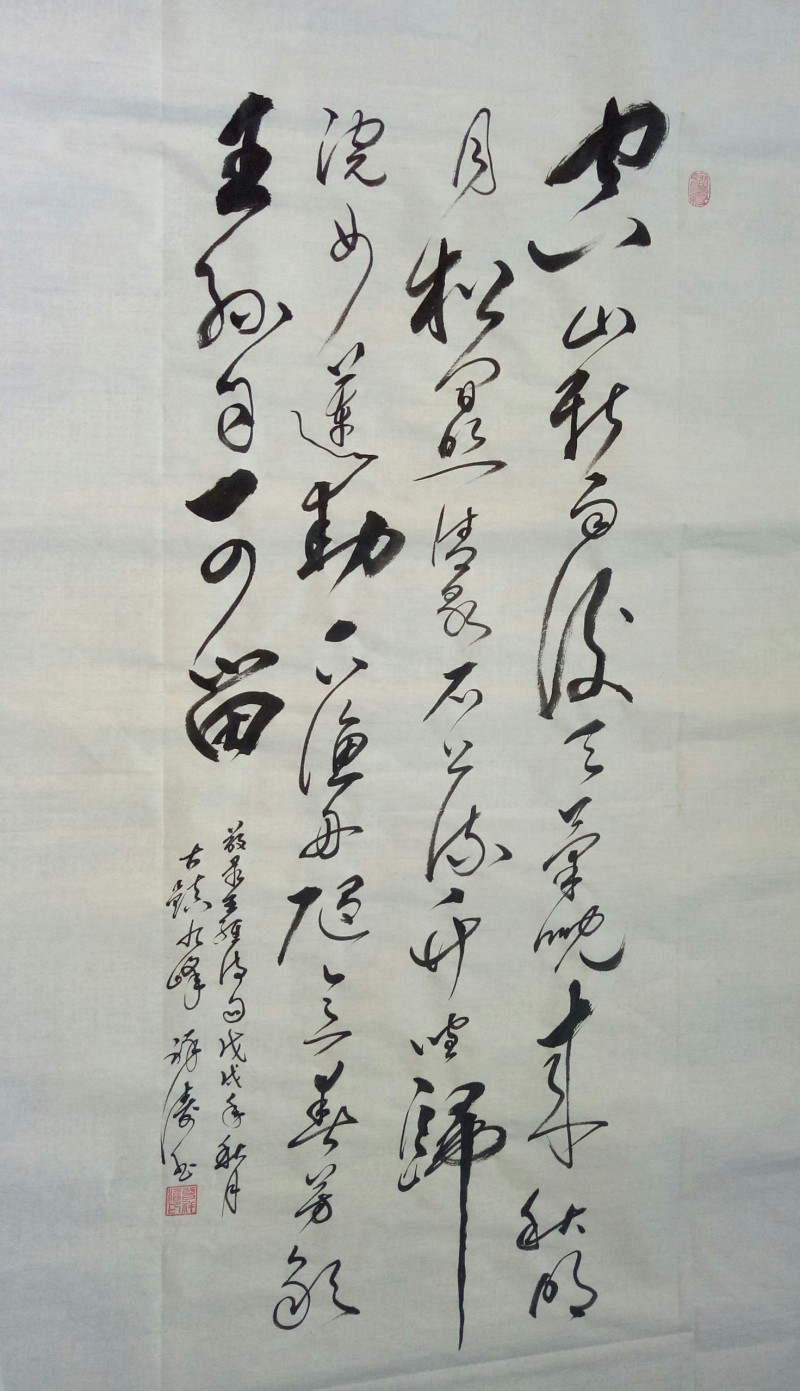 空山新雨後天氣晚來秋明
月松間照清泉石上流竹喧歸
浣女蓮動下漁舟隨意春芳歇
王孫自可留
录王維诗句戊戌年秋月
古鎮九峰 濤书